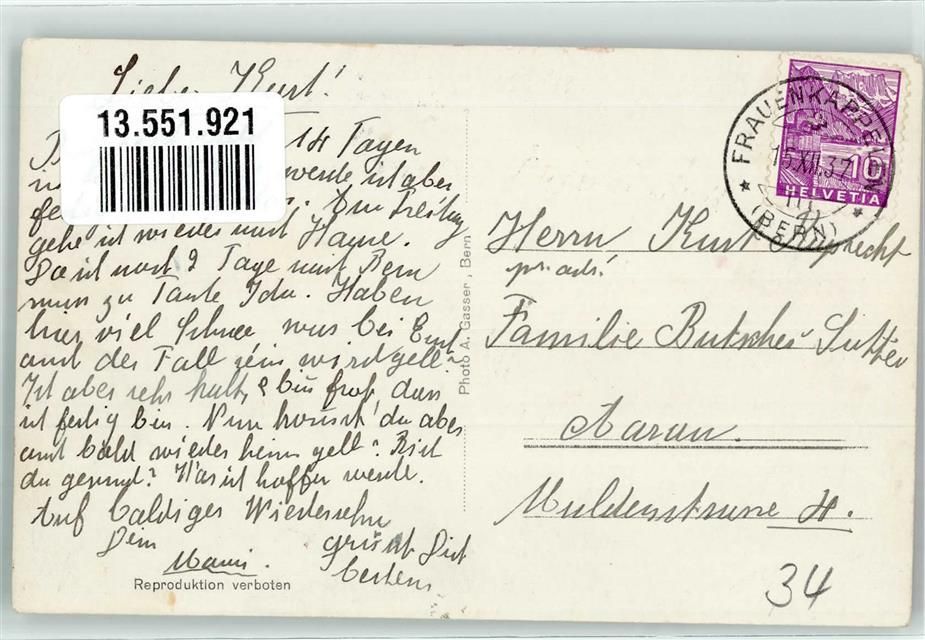 Lieber Kurt!
13.551.921
14 Tagen
werde ich aber
Am Freitag
gehe ich wieder nach Hause.
Da ich noch 2 Tage nach Bern
muss zu Tante Ida. Haben
hier viel Schnee was bei Euch
auch der Fall sein wird gell?
Ist aber sehr kalt, & bin froh, dass
ich fertig bin. Nun kommst du aber
auch bald wieder heim gell? Bist
du gesund? Was ich hoffen werde.
Auf baldiges Wiedersehn
Dein grüsst Dich
Mami. bestens
Reproduktion verboten
Photo A. Gasser, Bern
FRAUENKAPPELEN
15.XII.37
(BERN)
10
HELVETIA
Herrn Kurt
p. adr.
Familie Butscher Sutter
Aarau.
Muldenstrasse 4.
34